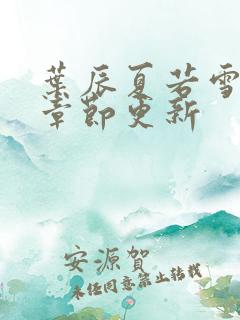 葉辰夏若雪
章節更新
安源賀
未经同意禁止转载